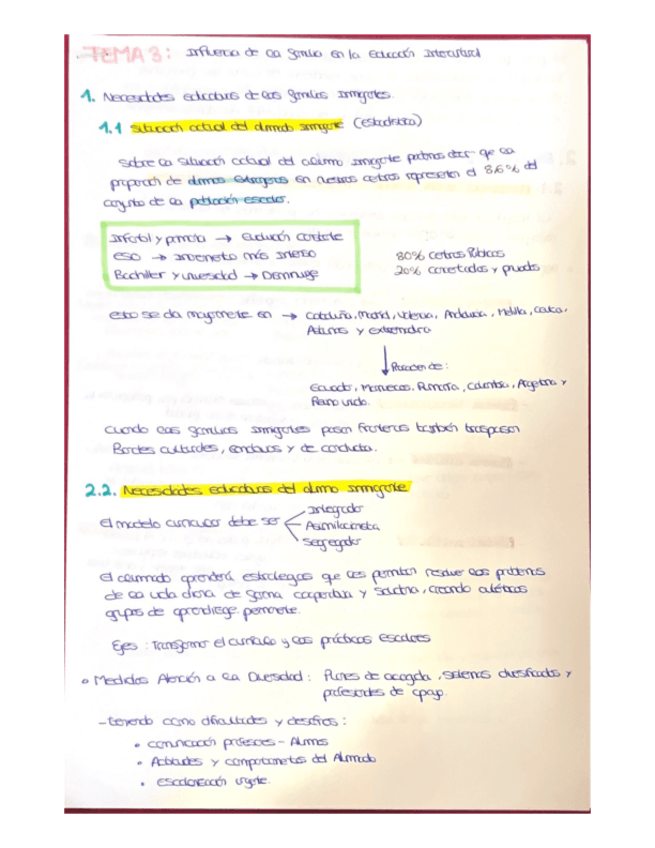 TEMA 3: Influencia de la familia en la educación intercultural
1. Necesidades educativas de las familias inmigrantes.
1.1 Situación actual del alumnado inmigrante (estadística)
Sobre la situación actual del alumno inmigrante podemos decir que la
proporción de alumnos extranjeros en nuestros centros representan el 8,6% del
conjunto de la población escolar.
Infantil y primaria → Evolución constante
ESO → incremento más intenso
Bachiller y universidad → Disminuye
80% centros Públicos
20% concertados y privados
esto se da mayormente en → Cataluña, Madrid, Valencia, Andalucia, Melilla, Ceuta,
Asturias y extremadura
↓ Proceden de:
Ecuador, Marruecos, Rumanía, Colombia, Argentina y
Reino unido.
Cuando las familias inmigrantes pasan fronteras también traspasan
Bordes culturales, y de conducta.
2.2. Necesidades educativas del alumno inmigrante
El modelo curricular debe ser
Integrador
Asimilacionista
Segregador
El alumnado aprenderá estrategias que les permitan resolver los problemas
de la vida diaria de forma cooperativa y solidaria, creando auténticos
grupos de aprendizaje permanente.
Ejes: Transformar el currículo y las prácticas escolares
• Medidas Atención a la Diversidad: Planes de acogida, sistemas diversificados y
profesorados de apoyo.
- Teniendo como dificultades y desafíos:
• comunicación profesores - Alumnos
• Actitudes y comportamientos del Alumnado
• escolarización urgente.